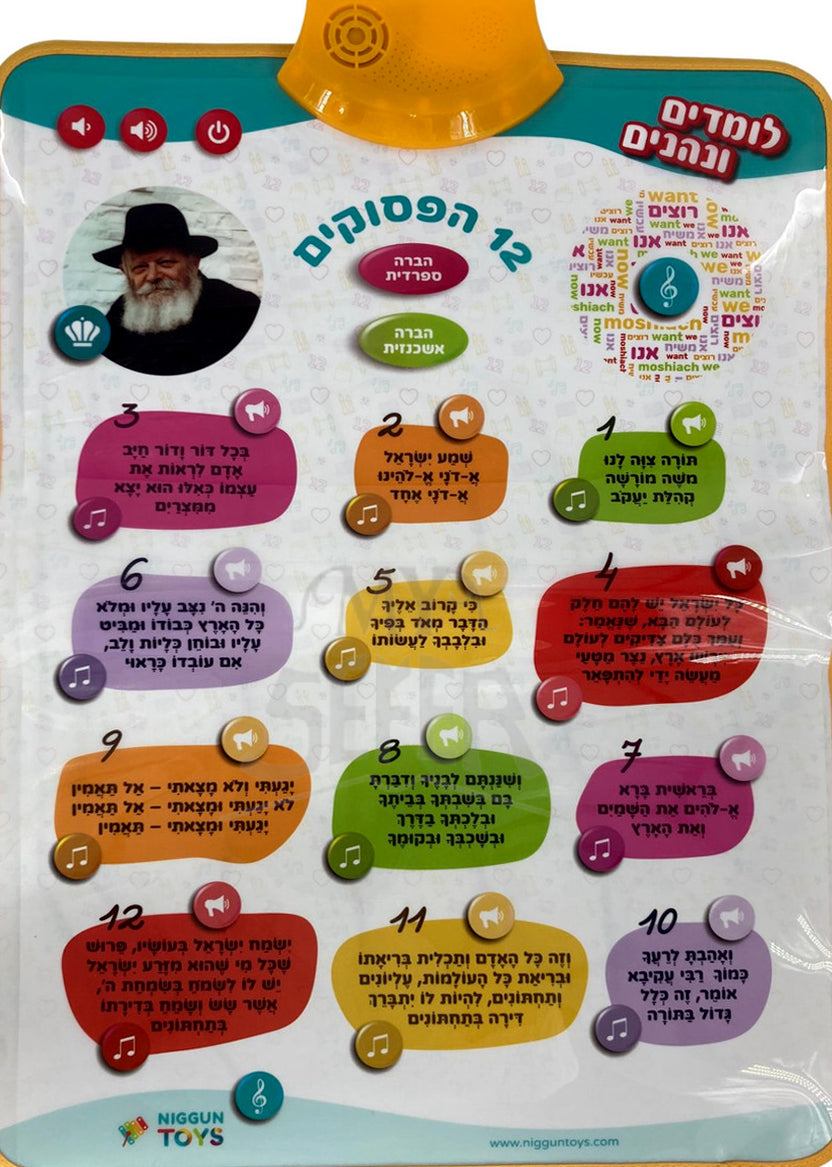 לומדים
ונהנים
12 הפסוקים
הברה
ספרדית
הברה
אשכנזית
want
רוצים
we want
אנו
want we
now
moshiach
want we
אנו
moshiach we
1
תּוֹרָה צִוָּה לָנוּ
משֶׁה מוֹרָשָׁה
קְהִלַּת יַעֲקֹב
2
שְׁמַע יִשְׂרָאֵל
אֲ-דֹנָי אֱ-לֹהֵינוּ
אֲ-דֹנָי אֶחָד
3
בְּכָל דּוֹר וָדוֹר חַיָּב
אָדָם לִרְאוֹת אֶת
עַצְמוֹ כְּאִלּוּ הוּא יָצָא
מִמִּצְרַיִם
4
כָּל יִשְׂרָאֵל יֵשׁ לָהֶם חֵלֶק
לְעוֹלָם הַבָּא, שֶׁנֶּאֱמַר:
וְעַמֵּךְ כֻּלָּם צַדִּיקִים לְעוֹלָם
יִירְשׁוּ אָרֶץ, נֵצֶר מַטָּעַי
מַעֲשֵׂה יָדַי לְהִתְפָּאֵר
5
כִּי קָרוֹב אֵלֶיךָ
הַדָּבָר מְאֹד בְּפִיךָ
וּבִלְבָבְךָ לַעֲשׂוֹתוֹ
6
וְהִנֵּה ה' נִצָּב עָלָיו וּמְלֹא
כָל הָאָרֶץ כְּבוֹדוֹ וּמַבִּיט
עָלָיו וּבוֹחֵן כְּלָיוֹת וָלֵב,
אִם עוֹבְדוֹ כָּרָאוּי
7
בְּרֵאשִׁית בָּרָא
אֱ-לֹהִים אֵת הַשָּׁמַיִם
וְאֵת הָאָרֶץ
8
וְשִׁנַּנְתָּם לְבָנֶיךָ וְדִבַּרְתָּ
בָּם בְּשִׁבְתְּךָ בְּבֵיתֶךָ
וּבְלֶכְתְּךָ בַדֶּרֶךְ
וּבְשָׁכְבְּךָ וּבְקוּמֶךָ
9
יָגַעְתִּי וְלֹא מָצָאתִי – אַל תַּאֲמִין
לֹא יָגַעְתִּי וּמָצָאתִי – אַל תַּאֲמִין
יָגַעְתִּי וּמָצָאתִי – תַּאֲמִין
10
וְאָהַבְתָּ לְרֵעֲךָ
כָּמוֹךָ רַבִּי עֲקִיבָא
אוֹמֵר, זֶה כְּלָל
גָּדוֹל בַּתּוֹרָה
11
וְזֶה כָּל הָאָדָם וְתַכְלִית בְּרִיאָתוֹ
וּבְרִיאַת כָּל הָעוֹלָמוֹת, עֶלְיוֹנִים
וְתַחְתּוֹנִים, לִהְיוֹת לוֹ יִתְבָּרֵךְ
דִּירָה בְּתַחְתּוֹנִים
12
יִשְׂמַח יִשְׂרָאֵל בְּעוֹשָׂיו, פֵּרוּשׁ
שֶׁכָּל מִי שֶׁהוּא מִזֶּרַע יִשְׂרָאֵל
יֵשׁ לוֹ לִשְׂמֹחַ בְּשִׂמְחַת ה',
אֲשֶׁר שָׂשׂ וְשָׂמֵחַ בְּדִירָתוֹ
בְּתַחְתּוֹנִים
MY
SEFER
NIGGUN
TOYS
www.nigguntoys.com